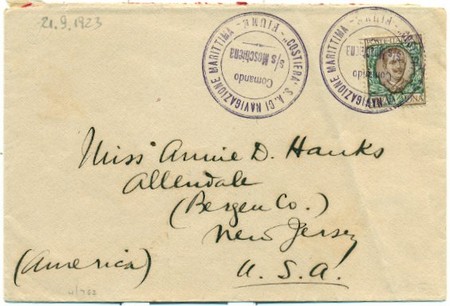 21.9.1923
"COSTIERA" S. A. DI NAVIGAZIONE MARITTIMA
- FIUME -
Comando
s/s Moschiena
"COSTIERA" S. A. DI NAVIGAZIONE MARITTIMA
- FIUME -
Comando
Miss Annie D. Hanks
Allendale
(Bergen Co.)
New Jersey
(America)
U. S. A.